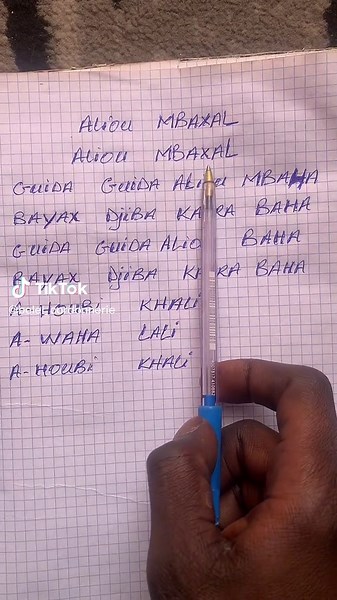 Aliou MBAXAL
Aliou MBAXAL
GuiDA GuiDA Aliou MBAHA
BAYAX DjiBA KA RA BAHA
GuiDA GuiDA Aliou BAHA
BAYAX DjiBA KA RA BAHA
TikTok
A-HOUBi KHALi
A-WAHA LALi
A-HOUBi KHALi